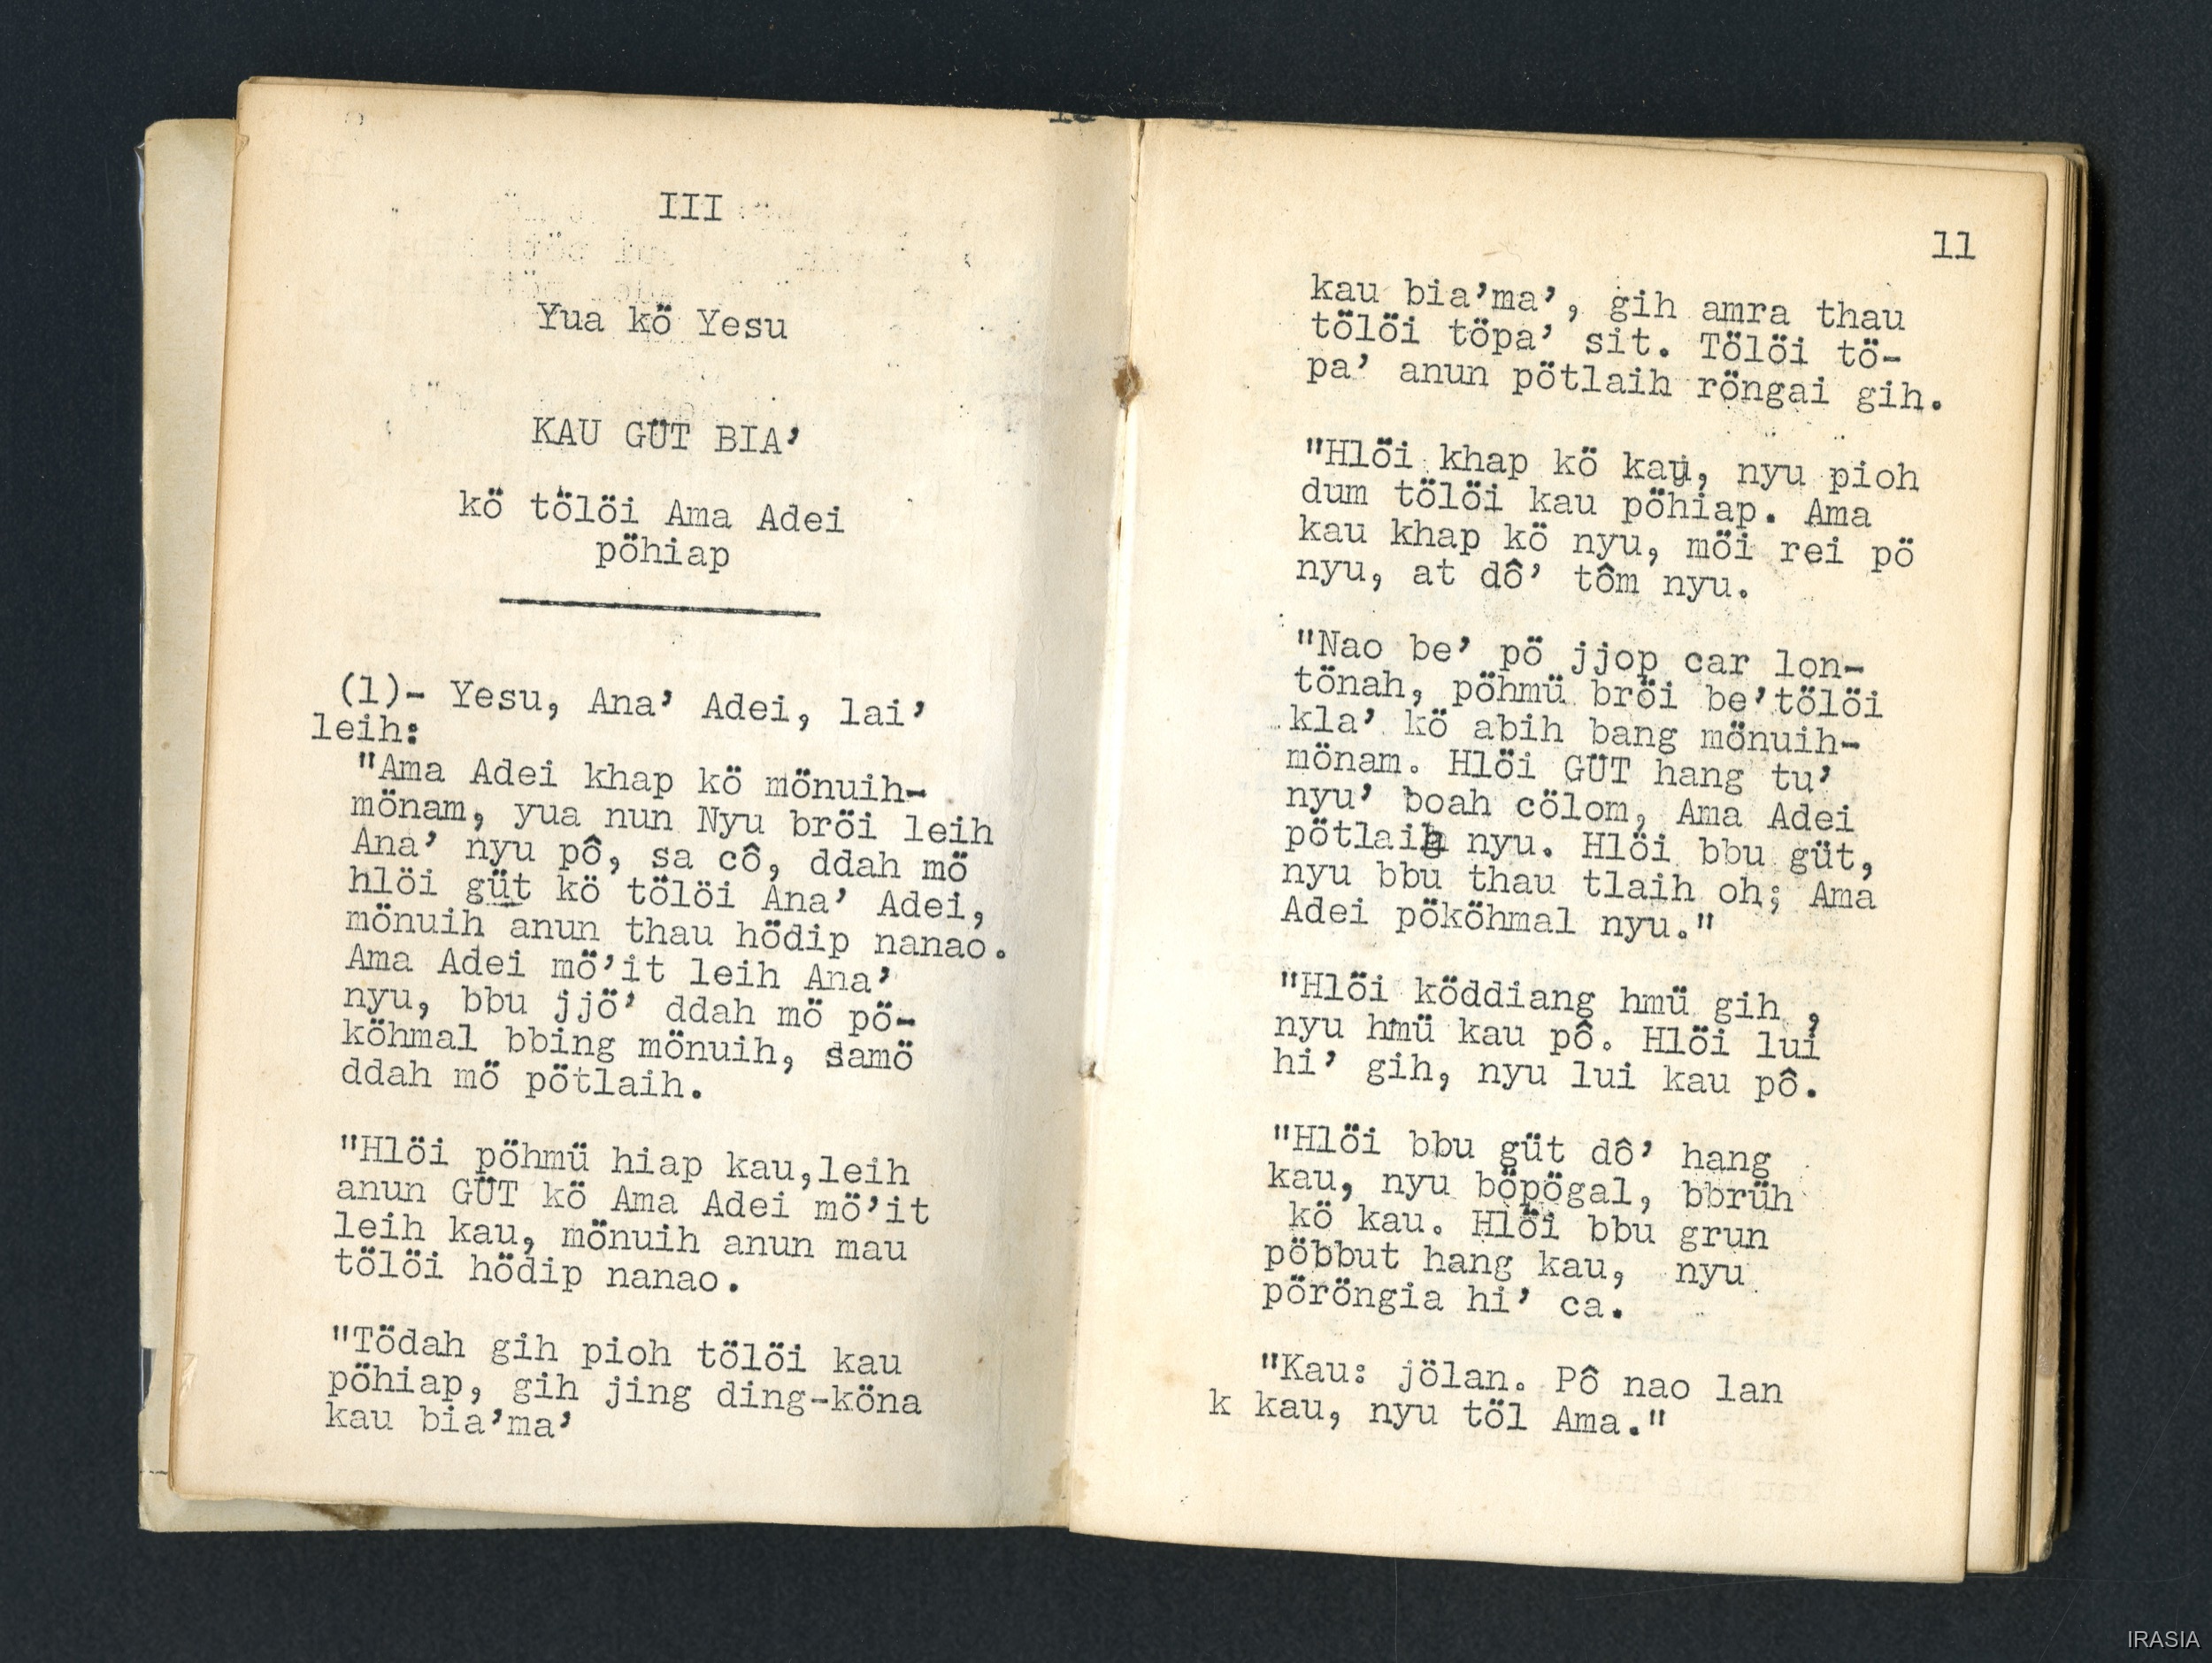 III
Yua kö Yesu
KAU GÜT BIA'
kö tölöi Ama Adei
pöhiap
(1)- Yesu, Ana' Adei, lai'
leih:
"Ama Adei khap kö mönuih-
mönam, yua nun Nyu bröi leih
Ana' nyu pô, sa cô, ddah mö
hlöi güt kö tölöi Ana' Adei,
mönuih anun thau hödip nanao.
Ama Adei mö'it leih Ana'
nyu, bbu jjö' ddah mö pö-
köhmal bbing mönuih, samö
ddah mö pötlaih.
"Hlöi pöhmü hiap kau,leih
anun GÜT kö Ama Adei mö'it
leih kau, mönuih anun mau
tölöi hödip nanao.
"Tödah gih pioh tölöi kau
pöhiap, gih jing ding-köna
kau bia'ma'
11
kau bia'ma', gih amra thau
tölöi töpa' sit. Tölöi tö-
pa' anun pötlaih röngai gih.
"Hlöi khap kö kau, nyu pioh
dum tölöi kau pöhiap. Ama
kau khap kö nyu, möi rei pö
nyu, at dô' tôm nyu.
"Nao be' pö jjop car lon-
tönah, pöhmü bröi be'tölöi
kla' kö abih bang mönuih-
mönam. Hlöi GÜT hang tu'
nyu' boah cölom, Ama Adei
pötlaih nyu. Hlöi bbu güt,
nyu bbu thau tlaih oh; Ama
Adei pököhmal nyu."
"Hlöi köddiang hmü gih ,
nyu hmü kau pô. Hlöi lui
hi' gih, nyu lui kau pô.
"Hlöi bbu güt dô' hang
kau, nyu böpögal, bbrüh
kö kau. Hlöi bbu grun
pöbbut hang kau, nyu
pöröngia hi' ca.
"Kau: jölan. Pô nao lan
k kau, nyu töl Ama."
IRASIA